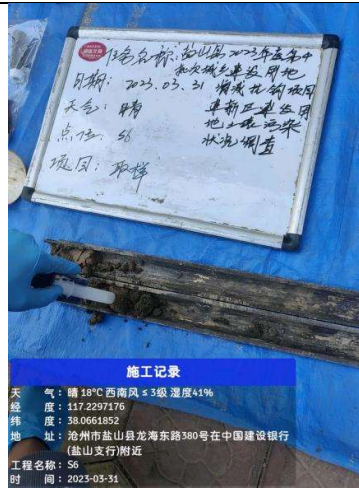 任务名称:盐山县2023年度第4
批次城乡建设用地
日期:2023.03.31 增减挂钩项目
天气:晴 建新区建设用
地土壤污染
点位:S6 状况调查
项目:取样
施工记录
天 气:晴 18℃ 西南风 ≤ 3级 湿度41%
经 度:117.2297176
纬 度:38.0661852
地 址:沧州市盐山县龙海东路380号在中国建设银行
(盐山支行)附近
工程名称:S6
时 间:2023-03-31